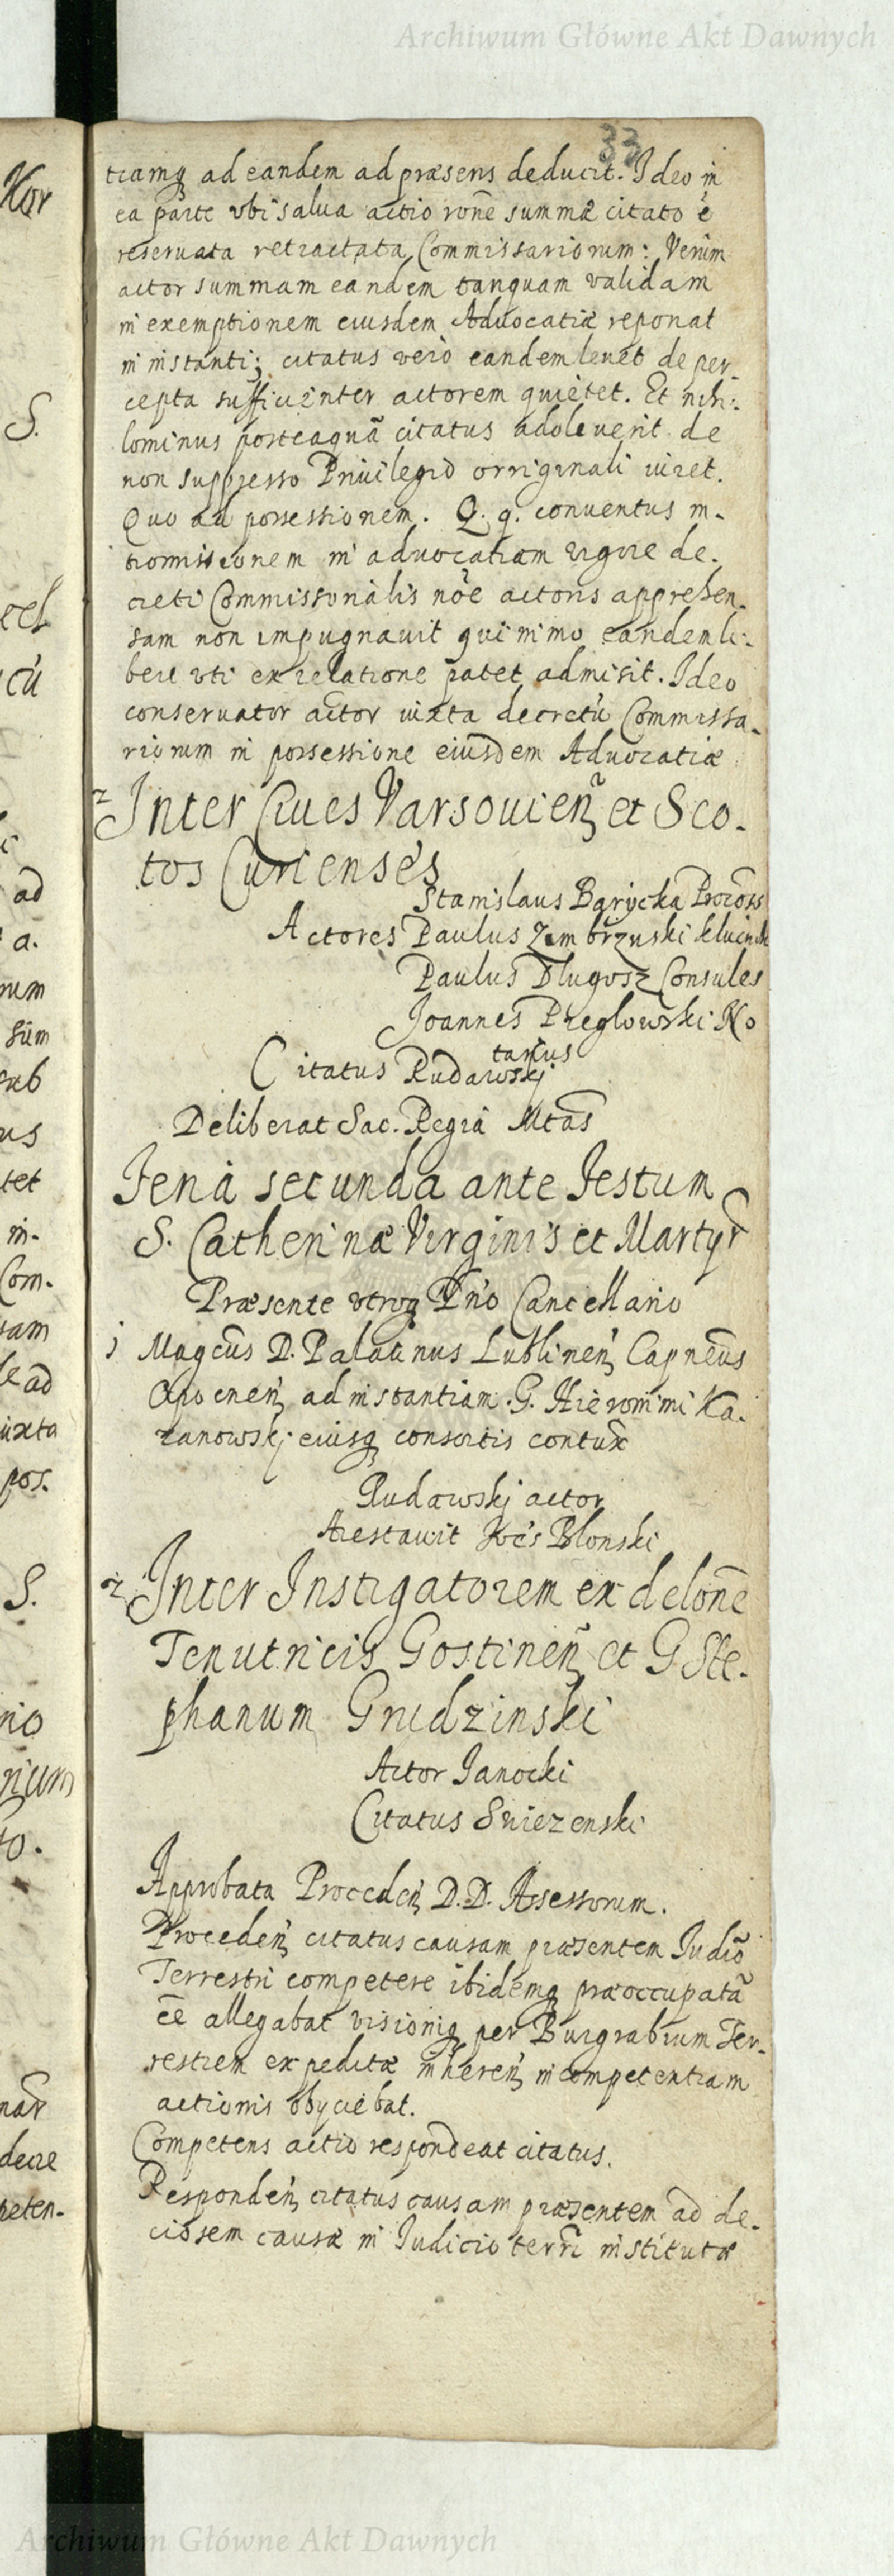 Archiwum Główne Akt Dawnych
33
tiamq ad eandem ad præsens deducit. Ideo in
ea parte vbi salua actio rōne summæ citato ē
reseruata retractata Commissariorum: Verum
actor summam eandem tanquam validam
in exemptionem eiusdem Aduocatiæ reponat
in instanti; citatus vero eandem leuet de per
cepta sufficienter actorem quietet. Et nihi:
lominus posteaquā citatus adoleuerit de
non suppresso Priuilegio originali iuret.
Quo ad possessionem. Q. q. conuentus in-
tromissionem in aduocatiam vigore de-
creti Commissorialis nōe actoris apprehen-
sam non impugnauit quinimo eandem li:
bere vti ex relatione patet admisit. Ideo
conseruatur actor iuxta decretū Commissa-
riorum in possessione eiusdem Aduocatiæ
2 Inter Ciues Varsouien̄ et Sco-
tos Curienses
Stanislaus Barycka Procōss
Actores Paulus Zembrzuski
Paulus Dlugosz Consules
Joannes Preglowski No
tarius
Citatus Rudawskj
Deliberat Sac. Regia Mtās
Feria secunda ante Festum
S. Catherinæ Virginis et Martyr
Præsente vtroq Dn̄o Cancellario
j Magcūs D. Palatinus Lublinen̄ Capneūs
ad instantiam G. Hieronimi Ka-
zanowskj eiusq consortis contūx
Rudawskj actor
Arestauit Blonski
2 Inter Instigatorem ex delōne
Tenutricis Gostinen̄ et G Ste-
phanum Grudzinski
Actor Janocki
Citatus Sniezenski
Approbata Proceden̄ D.D. Assessorum.
Proceden̄ citatus causam præsentem Judiō
Terrestri competere ibidemq præoccupatā
ēē allegabat visioniq per Burgrabium Ter-
restrem expeditæ inheren̄ incompetentiam
actionis obyciebat.
Competens actio respondeat citatus.
Responden̄ citatus causam præsentem ad de-
cisōem causæ in Judicio terri institutæ
Archiwum Główne Akt Dawnych